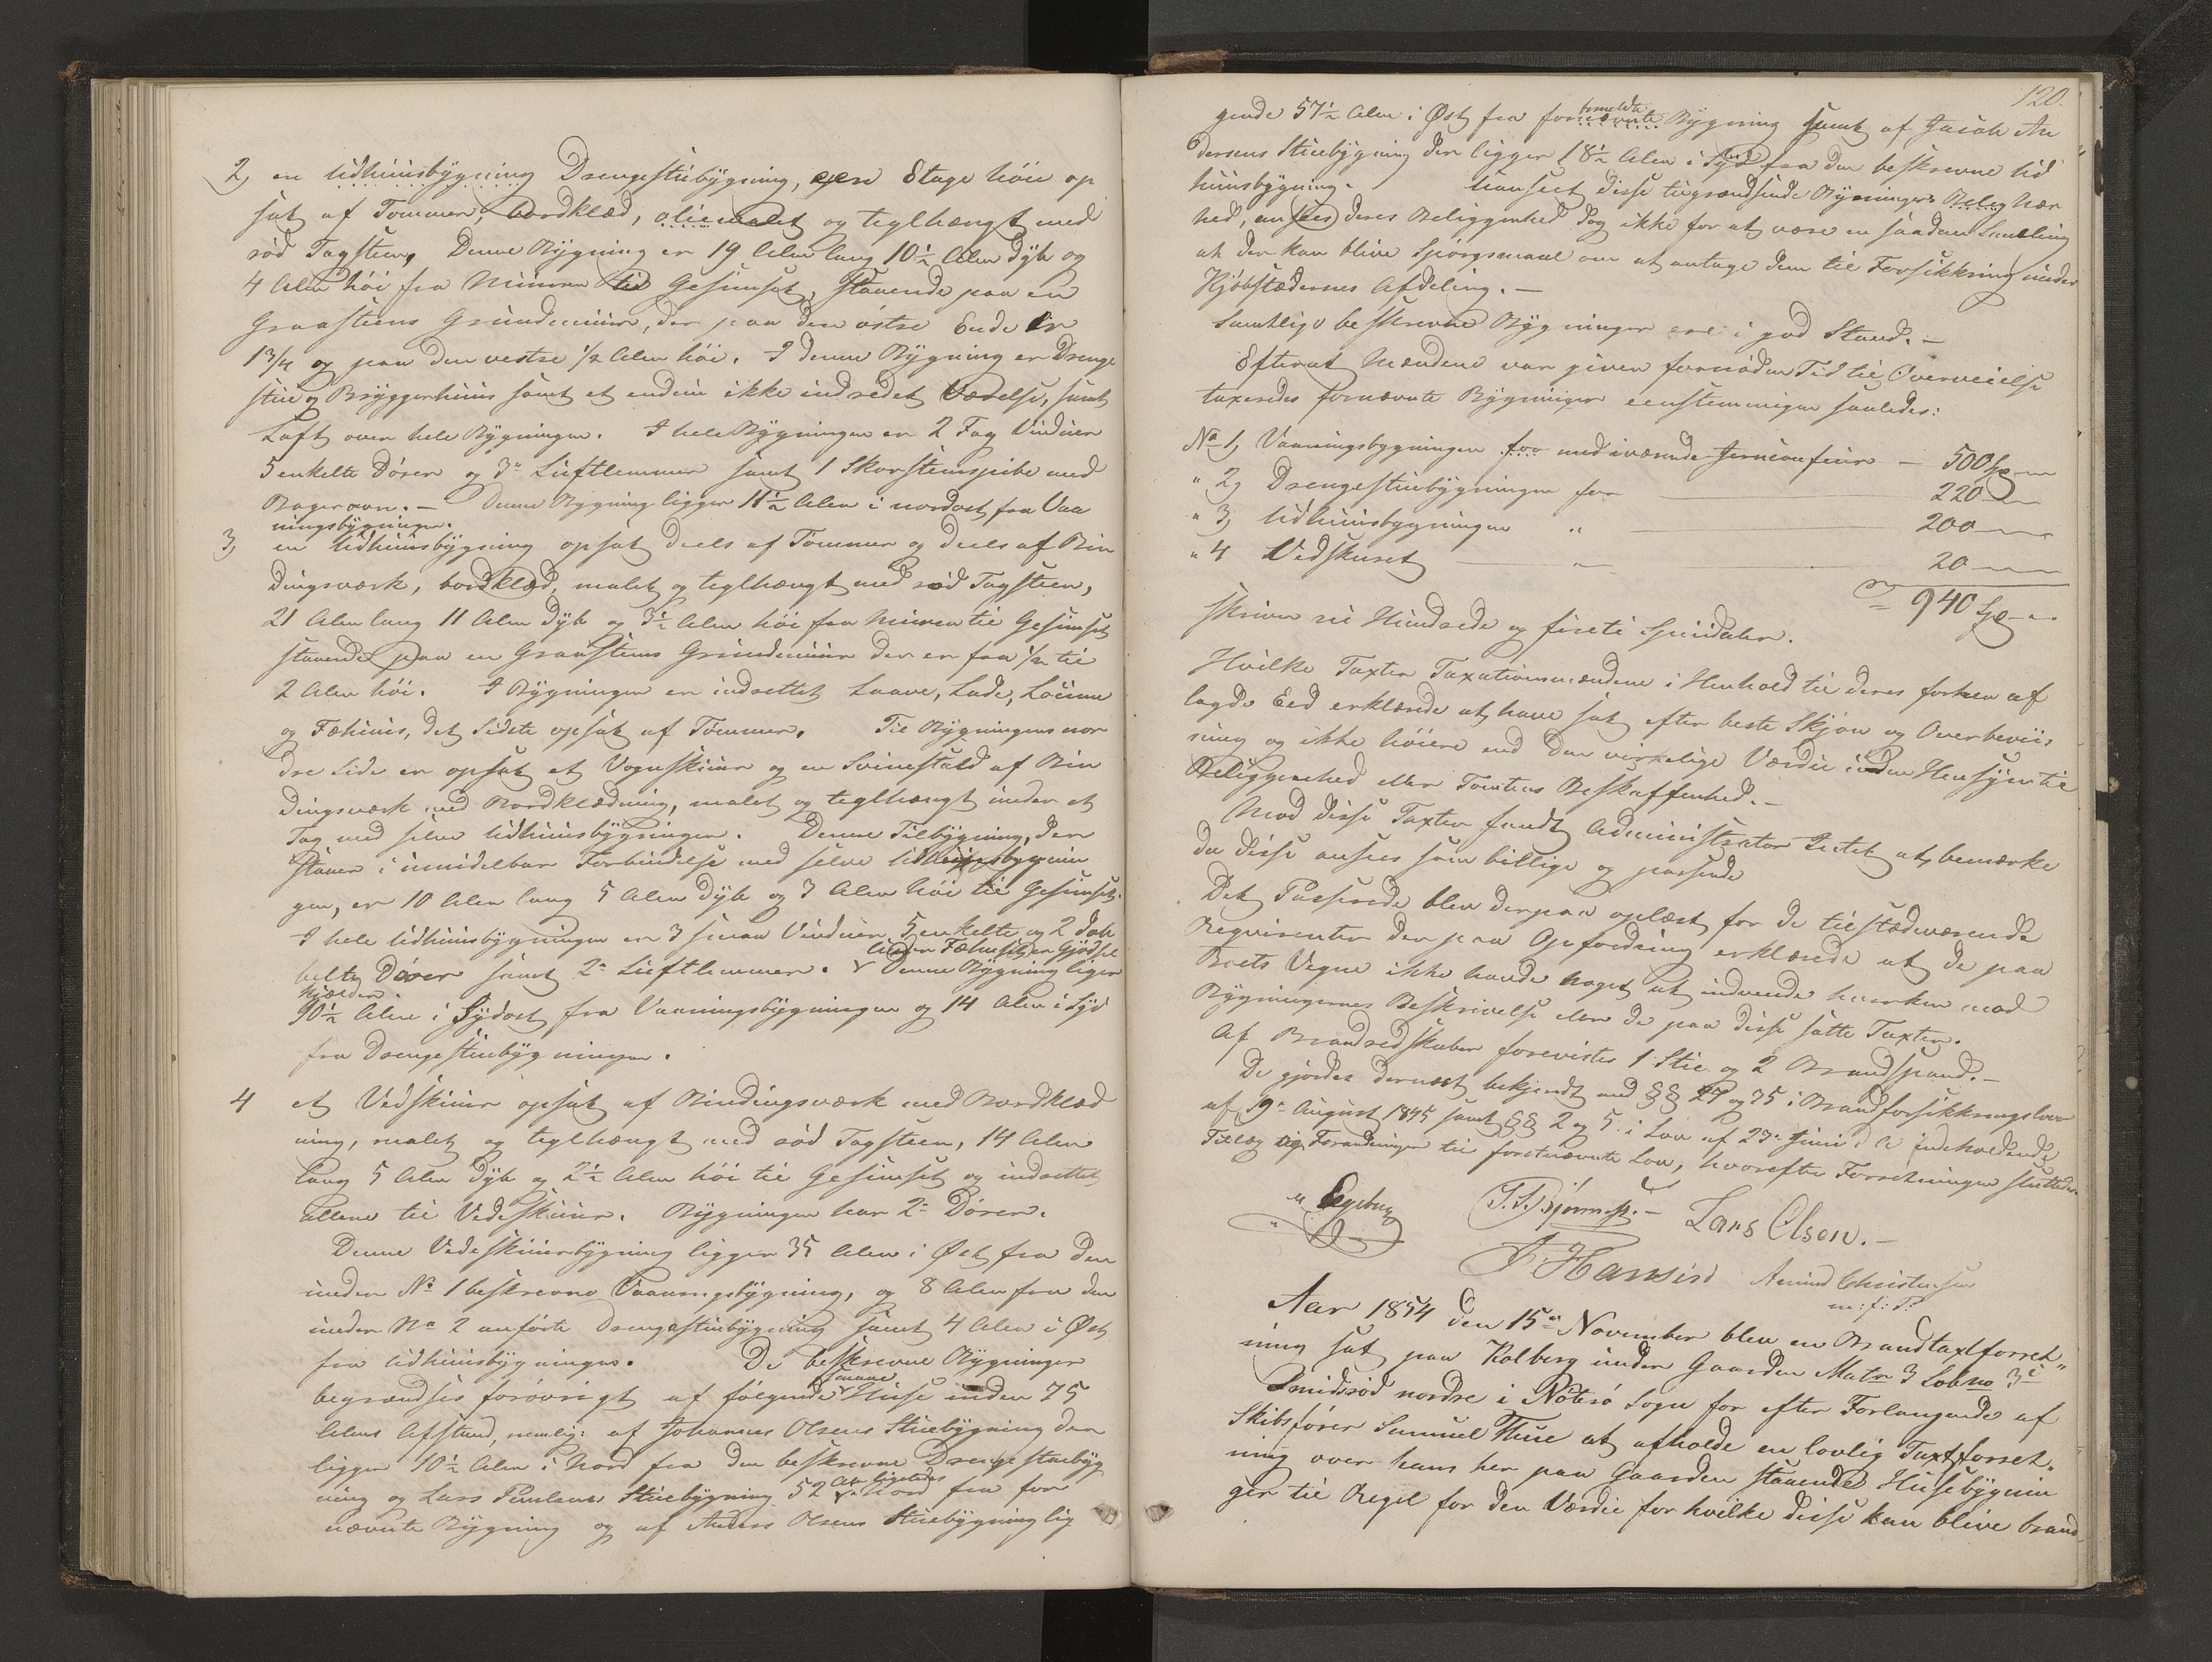 2, en Udhuusbygning Drengestuebygning, een Etage höi op
sat af Tømmer, bordklæd, oliemalet og teglhængt med
rød Tagsteen, Denne Bygning er 19 Alen lang 10½ Alen dyb og
4 Alen höi fra Muren til Gesimset, staaende paa en
Graasteens Grundmuur, der paa den östre Ende er
1¾ og paa den vestre ½ Alen höi. I denne Bygning er Drenge
stue og Bryggerhuus samt et endnu ikke indredet Værelse, samt
Loft over hele Bygningen. I hele Bygningen er 2 Fag Vinduer
5 enkelte Dörer og 3de Luftlemmer samt 1 Skorsteenspibe med
Bagerovn. – Denne Bygning ligger 11½ Alen i nordost fra Vaa
ningsbygningen.
3, en Udhuusbygning opsat deels af Tømmer og deels af Bin
dingsværk, bordklæd, malet og teglhængt med rød Tagsteen,
21 Alen lang 11 Alen dyb og 3½ Alen höi fra Muren til Gesimset
staaende paa en Graasteens Grundmuur der er fra ½ til
2 Alen höi. I Bygningen er indrettet Laave, Lade,
og Fæhuus, det sidste opsat af Tømmer. Til Bygningens nor
dre Side er opsat et Vognskuur og en Svinestald af Bin
dingsværk med Bordklædning, malet og teglhængt under et
Tag med selve Udhuusbygningen. Denne Tilbygning, der
staaer i umidelbar Forbindelse med selve Udhuusbygnin
gen, er 10 Alen lang 5 Alen dyb og 3 Alen höi til Gesimset.
I hele Udhuusbygningen er 3 smaa Vinduer 5 enkelte og 2 dob
under Fæhuset er Gjödsel
belte Dörer samt 2de Luftlemmer. Denne Bygning liger
kjælder
30½ Alen i Sydost fra Vaaningsbygningen og 14 Alen i Syd
fra Drengestuebygningen.
4 et Vedskuur opsat af Bindingsværk med Bordklæd
ning, malet og teglhængt med rød Tagsteen, 14 Alen
lang 5 Alen dyb og 2½ Alen höi til Gesimset og indrettet
allene til Vedeskuur. Bygningen har 2de Dörer.
Denne Vedeskuurbygning ligger 35 Alen i Øst fra den
under No 1 beskrevne Vaaningsbygning, og 8 Alen fra den
under No 2 anförte Drengestuebygning samt 4 Alen i Øst
fra Udhuusbygningen. De beskrevne Bygninger
smaae
begrændses forövrigt af fölgende Huse inden 75
Alens Afstand, nemlig: af Johannes Olsens Stuebygning der
ligger 10½ Alen i Nord fra den beskrevne Drengestuebyg
Al. ligeledes
ning og Lars Paulsens Stuebygning 52 i Nord fra for
nævnte Bygning og af Anders Olsens Stuebygning lig
120.
gende 57½ Alen i Øst fra fornævnte Bygning samt af Jacob An
bemeldte
dersens Stuebygning der ligger 18½ Alen i Syd fra den beskrevne Ud
huusbygning. Uanseet disse tilgrændsende Bygningers Belig Nær
hed, ansees deres Beliggenhed dog ikke for at være en saadan Samling
at der kan blive Spörgsmaal om at antage dem til Forsikkring under
Kjöbstædernes Afdeling. –
Samtlige beskrevne Bygninger ere i god Stand. –
Efterat Mændene var given fornöden Tid til Overveielse
taxeredes fornævnte Bygninger eenstemmigen saaledes:
No 1, Vaaningsbygningen for med iværende Jernkomfuur – 500 Sp
" 2, Drengestuebygningen for 220
" 3, Udhuusbygningen " 200
" 4 Vedskuret " 20
= 940 Sp
skriver ni Hundrede og fireti Speciedaler.
Hvilke Taxter Taxationsmændene i Henhold til deres forhen af
lagde Eed erklærede at have sat efter beste Skjön og Overbeviis
ning og ikke höiere end den virkelige Værdie uden Hensyn til
Beliggenhed eller Tomtens Beskaffenhed. –
Mod disse Taxter fandt Administrator Intet at bemærke
da disse ansees som billige og passende
Det Passerede blev derpaa oplæst for de tilstædeværende
Requirenter der paa Opfordring erklærede at de paa
Boets Vegne ikke havde noget at indvende hverken mod
Bygningernes Beskrivelse eller de paa disse satte Taxter.
Af Brandredskaber forevistes 1 Stie og 2 Brandspand. –
De gjordes dernæst bekjendt med §§ 27 og 35 i Brandforsikkringsloven
af 19de August 1845 samt §§ 2 og 5 i Lov af 23de Juni d. A. indeholdende
Tillæg og Forandringer til forstnævnte Lov, hvorefter Forretningen sluttedes.
Lars Olsen. –
J. Hansen Amund Christensen
m: f: P:
Aar 1854 den 15de November blev en Brandtaxtforret„
ning sat paa Kolberg under Gaarden Matr 3 Lobno 3c
Smidsröd nordre i Nöterö Sogn for efter Forlangende af
Skibsförer Samuel Thue at afholde en lovlig Taxtforret„
ning over hans her paa Gaarden staaende Husebygnin
ger til Regel for den Værdie for hvilke disse kan blive brand„